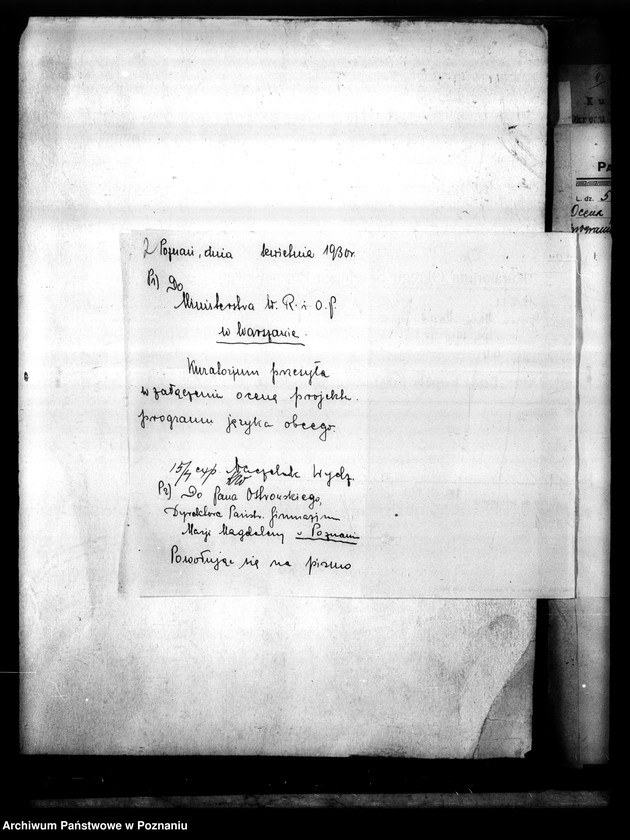 2 Poznań, dnia kwietnia 1930r.
P1) Do
Ministerstwa W. R. i O. P.
w Warszawie.
Kuratorjum przesyła
w załączeniu ocenę projekt.
programu języka obcego.
15/4 exp. Naczelnik Wydz.
P2) Do Pana Ostrowskiego,
Dyrektora Państw. Gimnazjum
Marji Magdaleny w Poznaniu
Powołując się na pismo
L. dz. 5
Ocena
programu
Archiwum Państwowe w Poznaniu